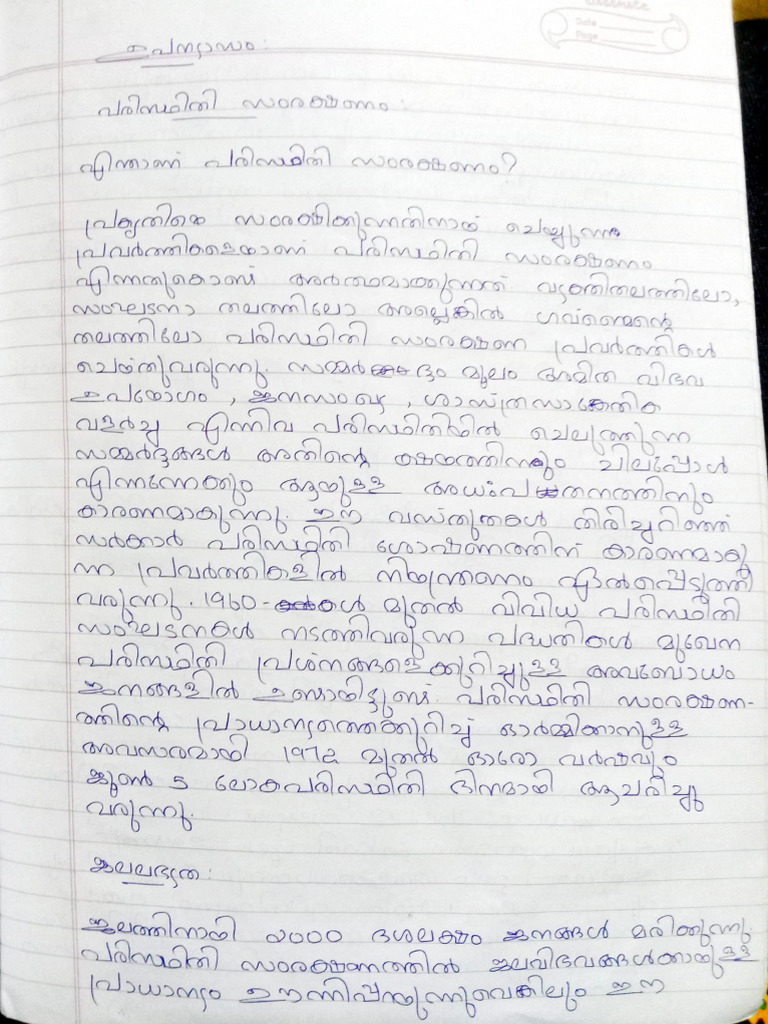 classmate
Date
Page
ഉപന്യാസം:
പരിസ്ഥിതി സംരക്ഷണം:
എന്താണ് പരിസ്ഥിതി സംരക്ഷണം?
പ്രകൃതിയെ സംരക്ഷിക്കുന്നതിനായ് ചെയ്യുന്ന
പ്രവർത്തികളെയാണ് പരിസ്ഥിതി സംരക്ഷണം
എന്നതുകൊണ്ട് അർത്ഥമാക്കുന്നത് വ്യക്തിതലത്തിലോ,
സംഘടനാ തലത്തിലോ അല്ലെങ്കിൽ ഗവണ്മെന്റെ
തലത്തിലോ പരിസ്ഥിതി സംരക്ഷണ പ്രവർത്തികൾ
ചെയ്തുവരുന്നു. സമ്മർദ്ദം മൂലം അമിത വിഭവ
ഉപയോഗം, ജനസംഖ്യ, ശാസ്ത്രസാങ്കേതിക
വളർച്ച എന്നിവ പരിസ്ഥിതിയിൽ ചെലുത്തുന്ന
സമ്മർദ്ദങ്ങൾ അതിന്റെ ക്ഷയത്തിനും ചിലപ്പോൾ
എന്നന്നേക്കും ആയുള്ള അധഃപതനത്തിനും
കാരണമാകുന്നു. ഈ വസ്തുതകൾ തിരിച്ചറിഞ്ഞ്
സർക്കാർ പരിസ്ഥിതി ശോഷണത്തിന് കാരണമാകു
ന്ന പ്രവർത്തികളിൽ നിയന്ത്രണം ഏർപ്പെടുത്തി
വരുന്നു. 1960-കൾ മുതൽ വിവിധ പരിസ്ഥിതി
സംഘടനകൾ നടത്തിവരുന്ന പദ്ധതികൾ മുഖേന
പരിസ്ഥിതി പ്രശ്നങ്ങളെക്കുറിച്ചുള്ള അവബോധം
ജനങ്ങളിൽ ഉണ്ടായിട്ടുണ്ട്. പരിസ്ഥിതി സംരക്ഷണ-
ത്തിന്റെ പ്രാധാന്യത്തെക്കുറിച്ച് ഓർമ്മിക്കാനുള്ള
അവസരമായി 1972 മുതൽ ഓരോ വർഷവും
ജൂൺ 5 ലോകപരിസ്ഥിതി ദിനമായി ആചരിച്ചു
വരുന്നു.
ജലലഭ്യത:
ജലത്തിനായി 2000 ദശലക്ഷം ജനങ്ങൾ മരിക്കുന്നു.
പരിസ്ഥിതി സംരക്ഷണത്തിൽ ജലവിഭവങ്ങൾക്കായുള്ള
പ്രാധാന്യം ഊന്നിപ്പറയുന്നുവെങ്കിലും ഈ